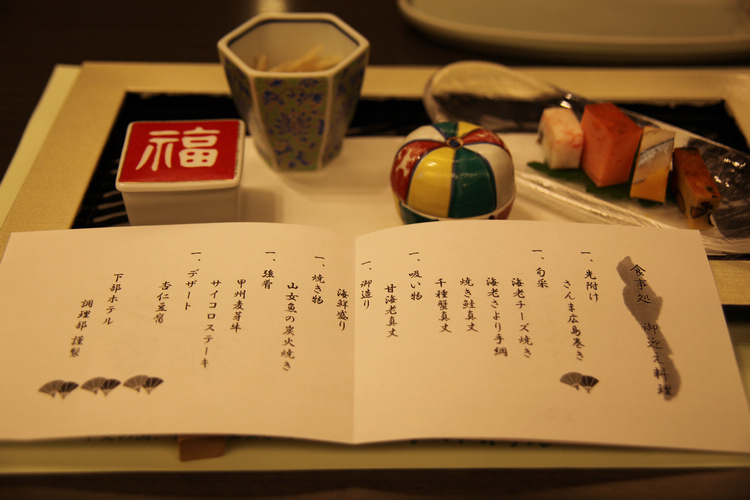 福
食事処 御迎え料理
一、先附け
さんま広島巻き
一、旬采
海老チーズ焼き
海老さより手綱
焼き鮭真丈
千種蟹真丈
一、吸い物
甘海老真丈
一、御造り
海鮮盛り
一、焼き物
山女魚の炭火焼き
一、強肴
甲州麦芽牛
サイコロステーキ
一、デザート
杏仁豆腐
下部ホテル
調理部 謹製